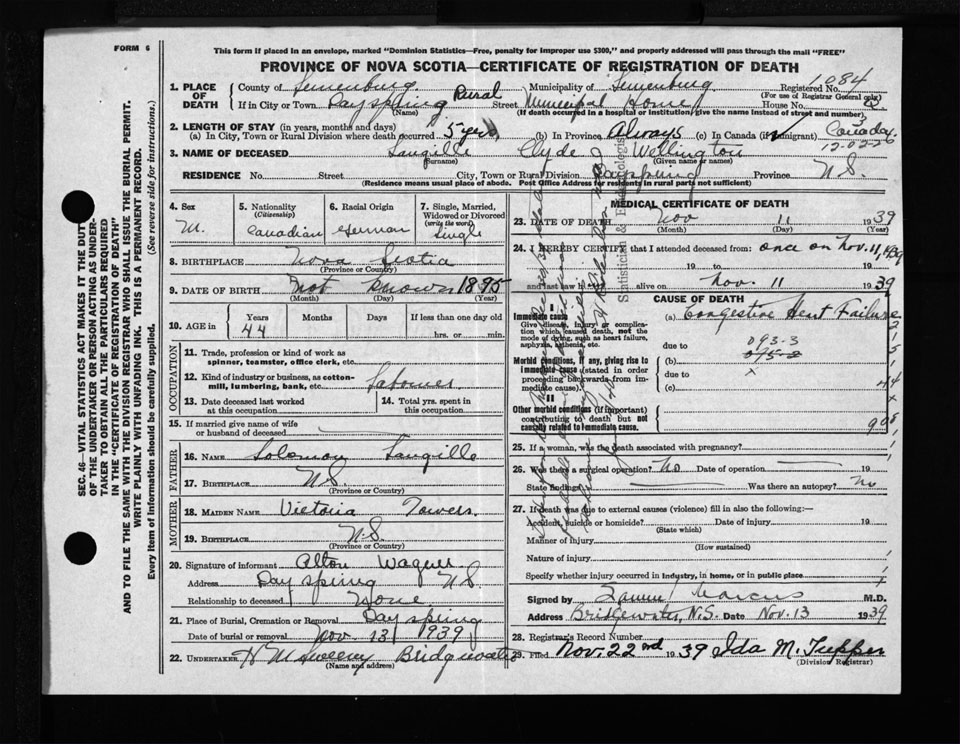 FORM 6
This form if placed in an envelope, marked "Dominion Statistics—Free, penalty for improper use $300," and properly addressed will pass through the mail "FREE"
PROVINCE OF NOVA SCOTIA—CERTIFICATE OF REGISTRATION OF DEATH
1. PLACE OF DEATH
County of Lunenburg Municipality of Lunenburg Registered No. 1084
(For use of Registrar General only)
If in City or Town Dayspring Rural Street Municipal Home House No.
(Name) (If death occurred in a hospital or institution, give the name instead of street and number)
2. LENGTH OF STAY (in years, months and days)
(a) In City, Town or Rural Division where death occurred 5 yrs, (b) In Province Always (c) In Canada (if immigrant) Canada
3
12-02-26
3. NAME OF DECEASED Langille Clyde Wellington
(Surname) (Given name or names)
RESIDENCE No. Street City, Town or Rural Division Dayspring Province N.S.
(Residence means usual place of abode. Post Office Address for residents in rural part not sufficient)
4. Sex M.
5. Nationality (Citizenship) Canadian
6. Racial Origin German
7. Single, Married, Widowed or Divorced (write the word) Single
8. BIRTHPLACE Nova Scotia
(Province or Country)
9. DATE OF BIRTH Not Known 1895
(Month) (Day) (Year)
10. AGE in Years 44 Months Days If less than one day old hrs. or min.
OCCUPATION
11. Trade, profession or kind of work as spinner, teamster, office clerk, etc.
12. Kind of industry or business, as cotton-mill, lumbering, bank, etc. Labourer
13. Date deceased last worked at this occupation
14. Total yrs. spent in this occupation
15. If married give name of wife or husband of deceased
FATHER
16. NAME Solomon Langille
17. BIRTHPLACE N.S.
(Province or Country)
MOTHER
18. MAIDEN NAME Victoria Towers
19. BIRTHPLACE N.S.
(Province or Country)
20. Signature of informant Alton Wagner
Address Dayspring N.S.
Relationship to deceased None
21. Place of Burial, Cremation or Removal Dayspring
Date of burial or removal Nov. 13 1939
22. UNDERTAKER Bridgewater
(Name and address)
MEDICAL CERTIFICATE OF DEATH
23. DATE OF DEATH Nov 11 1939
(Month) (Day) (Year)
24. I HEREBY CERTIFY that I attended deceased from: once on Nov. 11, 1939
19 to 19
and last saw h alive on Nov. 11 1939
CAUSE OF DEATH
I
Immediate cause
Give disease, injury or complication which caused death, not the mode of dying, such as heart failure, asphyxia, asthenia, etc.
(a) Congestive Heart Failure
due to 093-3
Morbid conditions, if any, giving rise to immediate cause (stated in order proceeding backwards from immediate cause).
(b) 095-2
due to x
(c)
II
Other morbid conditions (if important) contributing to death but not causally related to immediate cause.
25. If a woman, was the death associated with pregnancy?
26. Was there a surgical operation? No Date of operation 19
State findings Was there an autopsy? No
27. If death was due to external causes (violence) fill in also the following:—
Accident, suicide or homicide? Date of injury 19
(State which)
Manner of injury
(How sustained)
Nature of injury
Specify whether injury occurred in industry, in home, or in public place
Signed by Marcus M.D.
Address Bridgewater, N.S. Date Nov. 13 1939
28. Registrar's Record Number
29. Filed Nov. 22nd 1939 Ida M. Tupper
(Division Registrar)
SEC. 46—VITAL STATISTICS ACT MAKES IT THE DUTY OF THE UNDERTAKER OR PERSON ACTING AS UNDERTAKER TO OBTAIN ALL THE PARTICULARS REQUIRED IN THE "CERTIFICATE OF REGISTRATION OF DEATH" AND TO FILE THE SAME WITH THE DIVISION REGISTRAR WHO SHALL ISSUE THE BURIAL PERMIT.
WRITE PLAINLY WITH UNFADING INK. THIS IS A PERMANENT RECORD.
Every item of information should be carefully supplied. (See reverse side for instructions.)